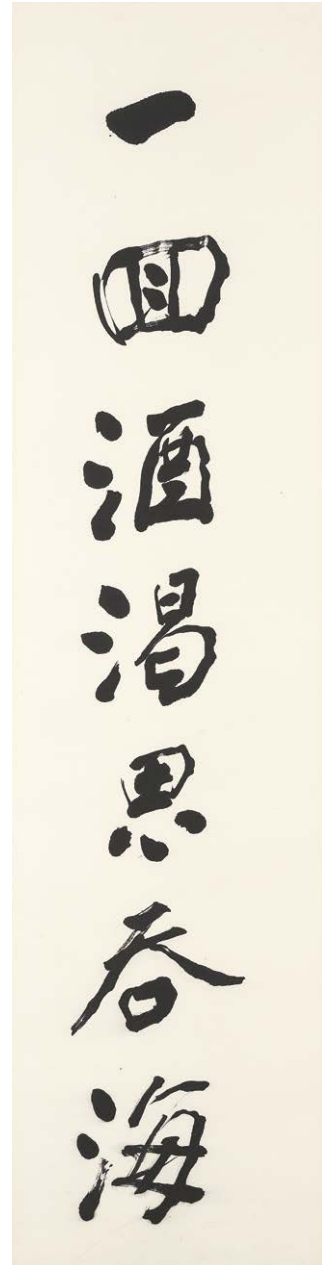 一回酒渇思吞海